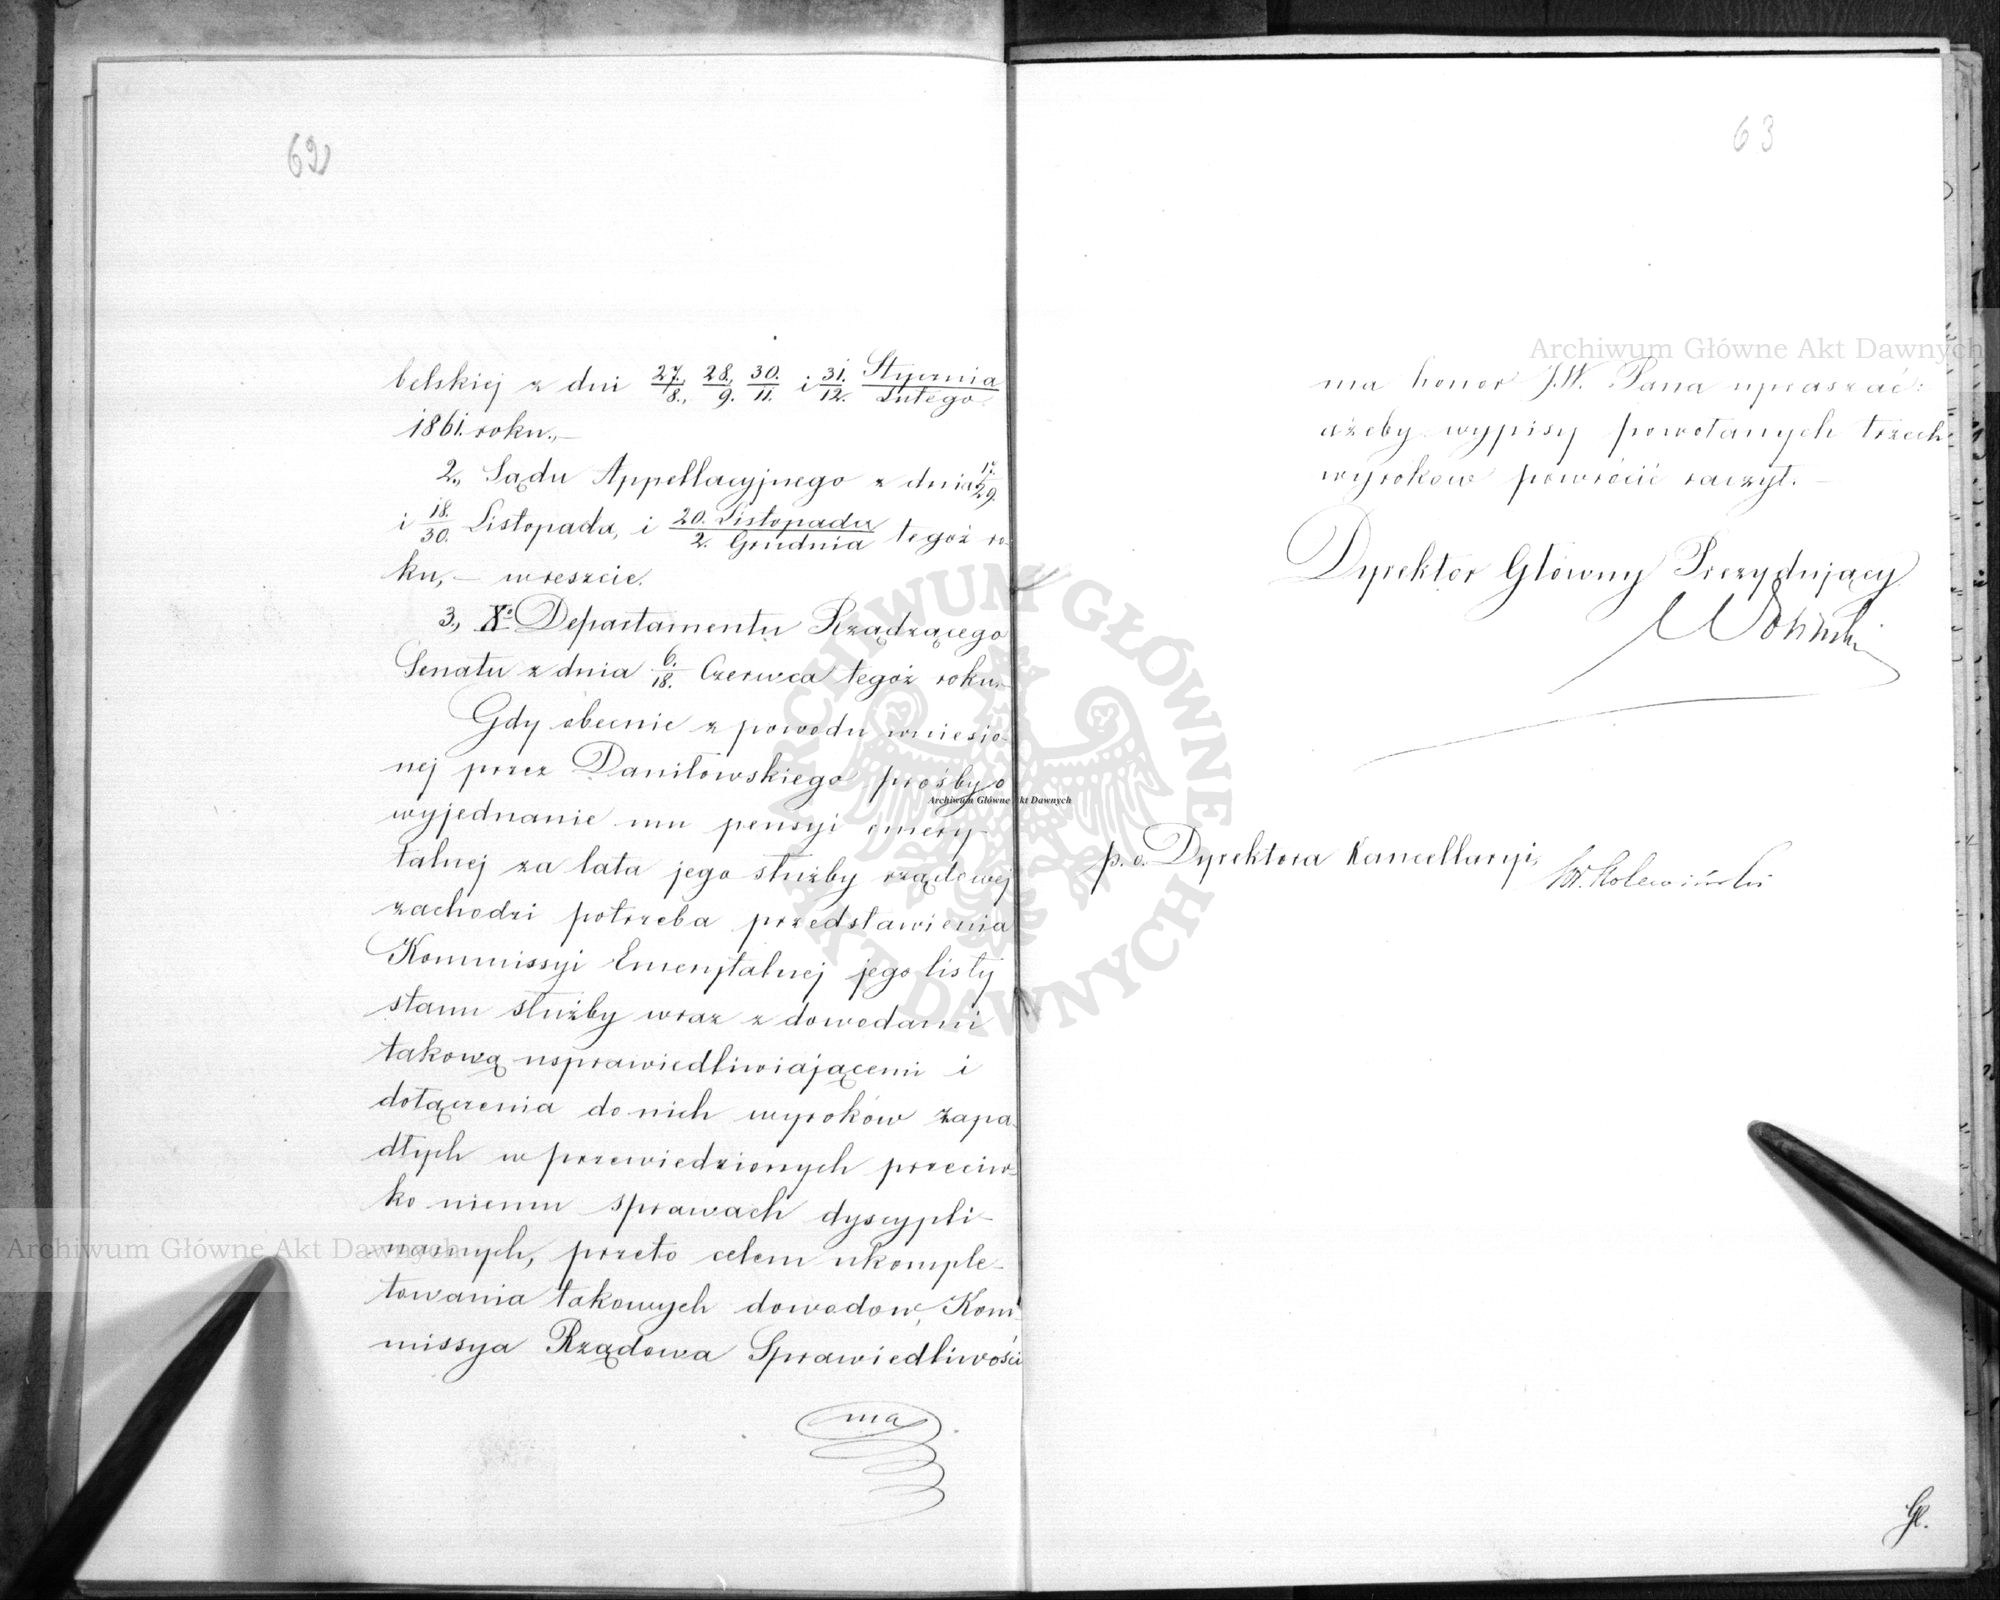 62
belskiej z dni 27./8., 28./9. 30./11. i 31./12. Stycznia/Lutego
1861. roku.,—
2., Sądu Appellacyjnego z dnia 17./29.
i 18./30. Listopada, i 20. Listopada/2. Grudnia tegoż ro-
ku, — wreszcie.
3., Xo. Departamentu Rządzącego
Senatu z dnia 6./18. Czerwca tegoż roku.—
Gdy obecnie z powodu wniesio-
nej przez Daniłowskiego prośby o
wyjednanie mu pensyi emery-
talnej za lata jego służby rządowej
zachodzi potrzeba przedstawienia
Kommissyi Emerytalnej jego listy
stanu służby wraz z dowodami
takową usprawiedliwiającemi i
dołączenia do nich wyroków zapa-
dłych w przewiedzionych przeciw-
ko niemu sprawach dyscypli-
narnych, przeto celem ukomple-
towania takowych dowodow, Kom-
missya Rządowa Sprawiedliwości
ma
63
ma honor J.W. Pana upraszać:
ażeby wypisy powołanych trzech
wyrokow powrócić raczył. —
Dyrektor Główny Prezydujący
p. o. Dyrektora Kancellaryi,
Archiwum Główne Akt Dawnych
Archiwum Główne Akt Dawnych
Archiwum Główne Akt Dawnych
ARCHIWUM GŁÓWNE AKT DAWNYCH